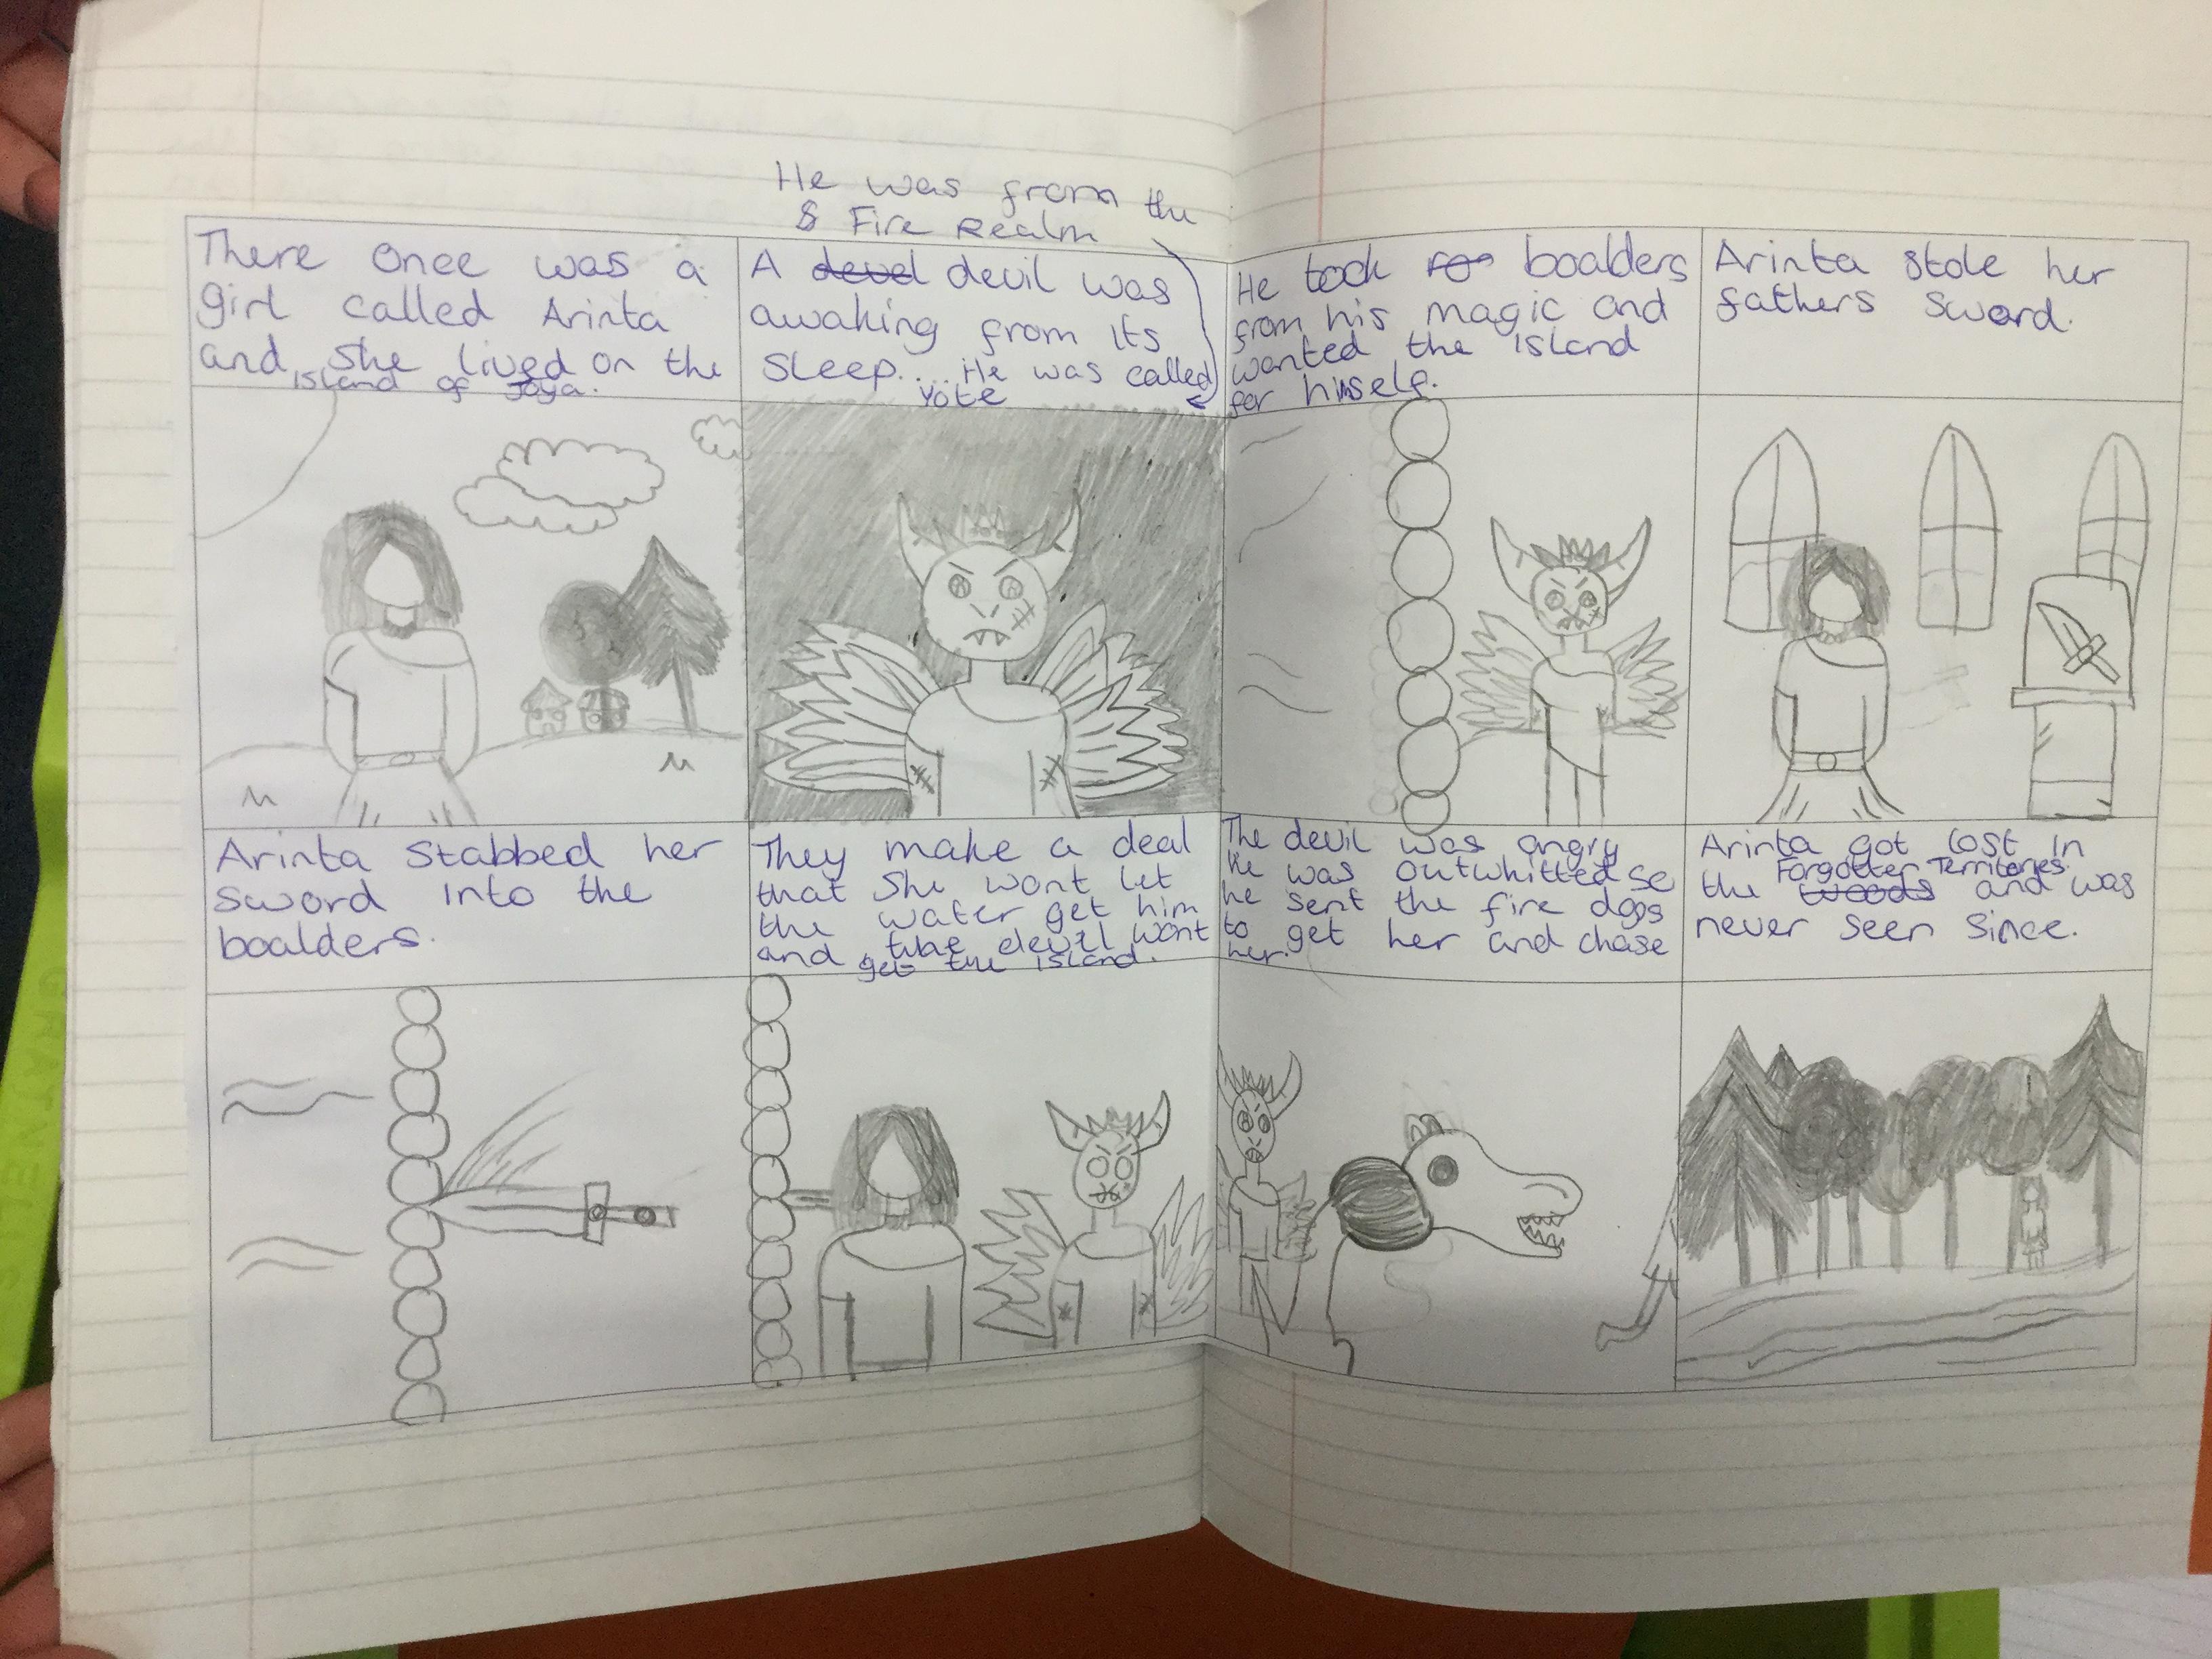 He was from the
Fire Realm
There once was a
girl called Arinta
and she lived on the
island of Joya.
A devel devil was
awaking from its
sleep.... He was called
Yote
He took boalders
from his magic and
wanted the island
for himself.
Arinta stole her
fathers sword.
Arinta stabbed her
sword into the
boalders.
They make a deal
that she wont let
the water get him
and the devil wont
get the island.
The devil was angry
he was outwhitted so
he sent the fire dogs
to get her and chase
her.
Arinta got lost in
Forgotten Territories
the woods and was
never seen since.